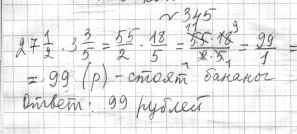 ~ 345
27 1/2 · 3 3/5 = 55/2 · 18/5 = 55 · 18/2 · 5 = 99/1 =
= 99 (р) - стоят бананы
Ответ: 99 рублей